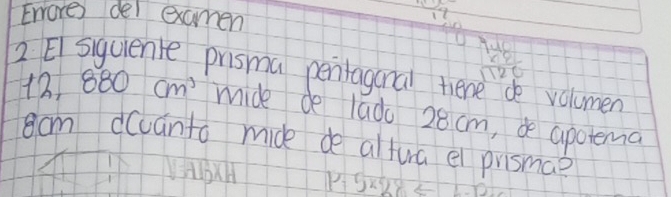 Errores del examen
2. El siguiente prisma pentagonal tiene de volumen
12,880 cm³ mide de lado 28 cm, de apotema
8cm ¿Cuánto mide de altura el prisma?
V=ABXH